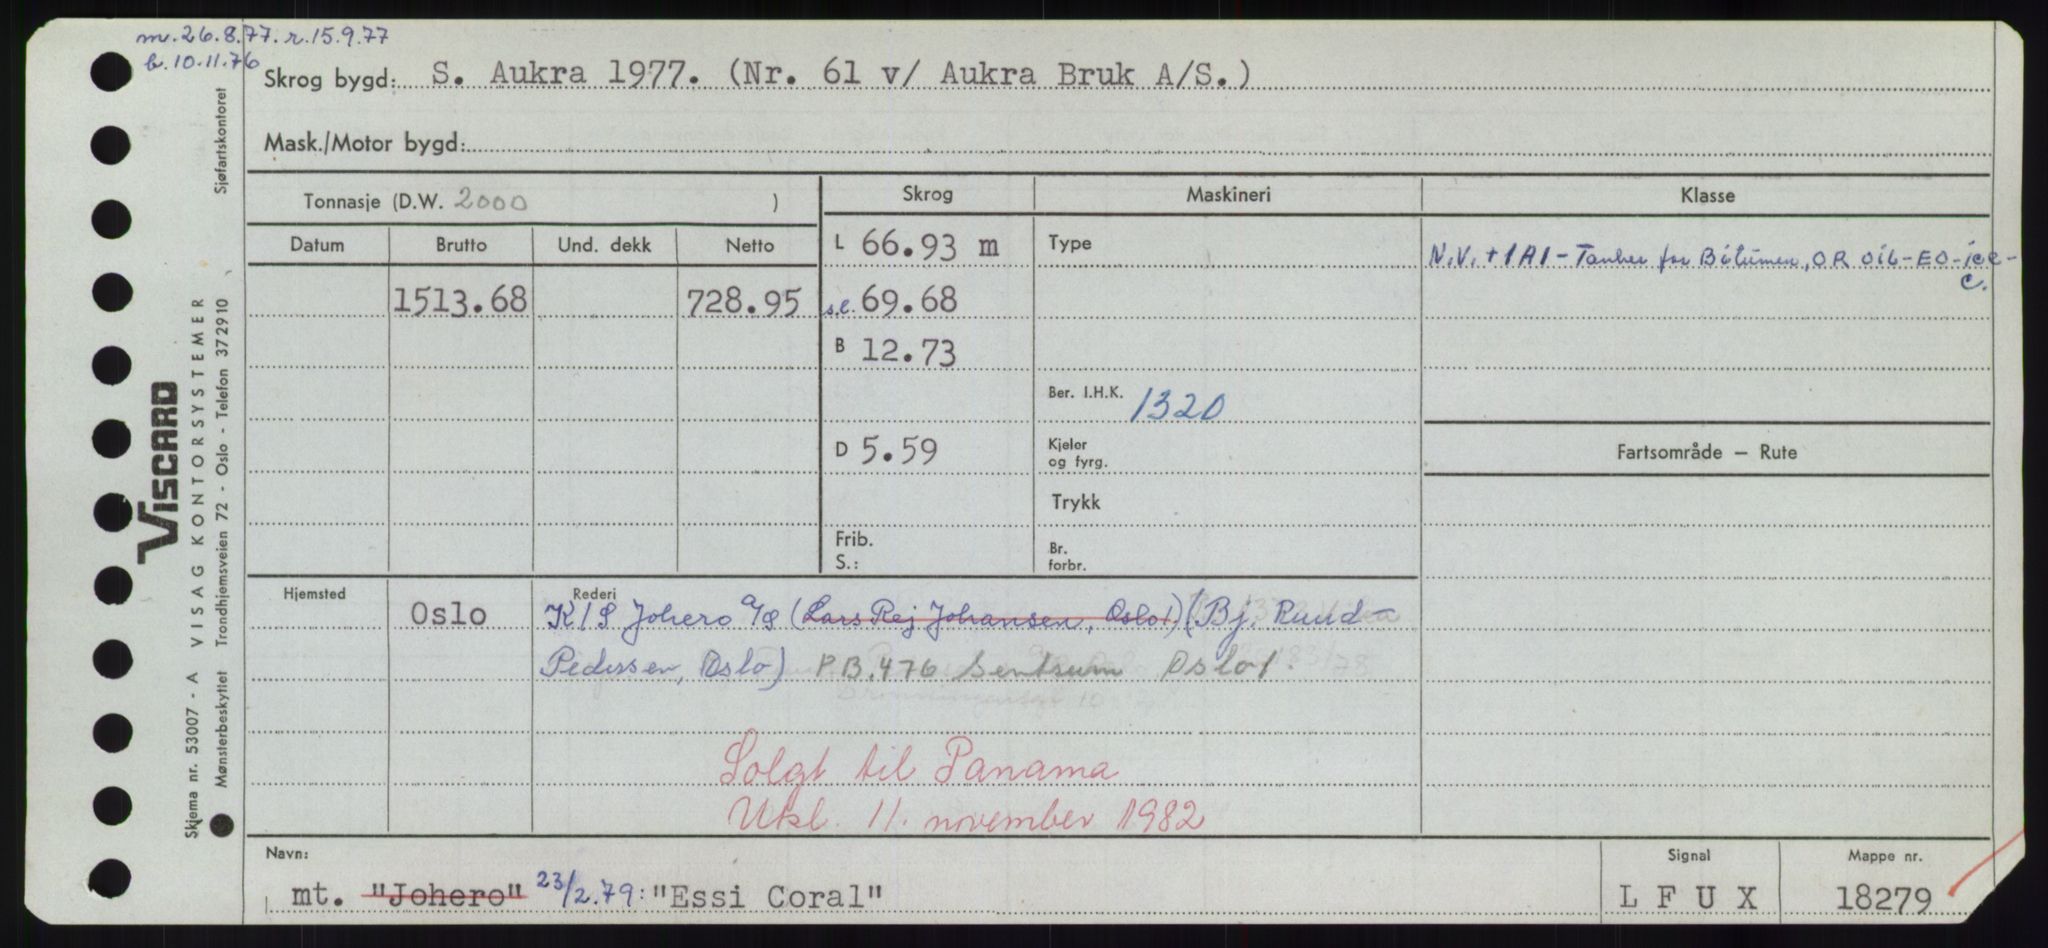 m. 26.8.77. r. 15.9.77
b. 10.11.76
Skrog bygd: S. Aukra 1977. (Nr. 61 v/ Aukra Bruk A/S.)
Mask./Motor bygd:
Tonnasje (D.W. 2000 )
Skrog
Maskineri
Klasse
Datum
Brutto
Und. dekk
Netto
L 66.93 m
Type
N.V. + 1A1 - Tanker for Bitumen, OR OiL - EO - ice -
C.
1513.68
728.95
s.l. 69.68
B 12.73
Ber. I.H.K. 1320
D 5.59
Kjeler
og fyrg.
Fartsområde — Rute
Trykk
Frib.
S.:
Br.
forbr.
Hjemsted
Oslo
Rederi
K/S Johero A/S (Lars Rej Johansen, Oslo1) (Bj. Ruud-
Pedersen, Oslo) P.B. 476 Sentrum Oslo 1.
Solgt til Panama
Utkl. 11. november 1982
Navn:
mt. "Johero" 23/2.79: "Essi Coral"
Signal
L F U X
Mappe nr.
18279
Sjøfartskontoret
VISCARD
VISAG KONTORSYSTEMER
Trondhjemsveien 72 - Oslo - Telefon 372910
Skjema nr. 53007 - A
Mønsterbeskyttet